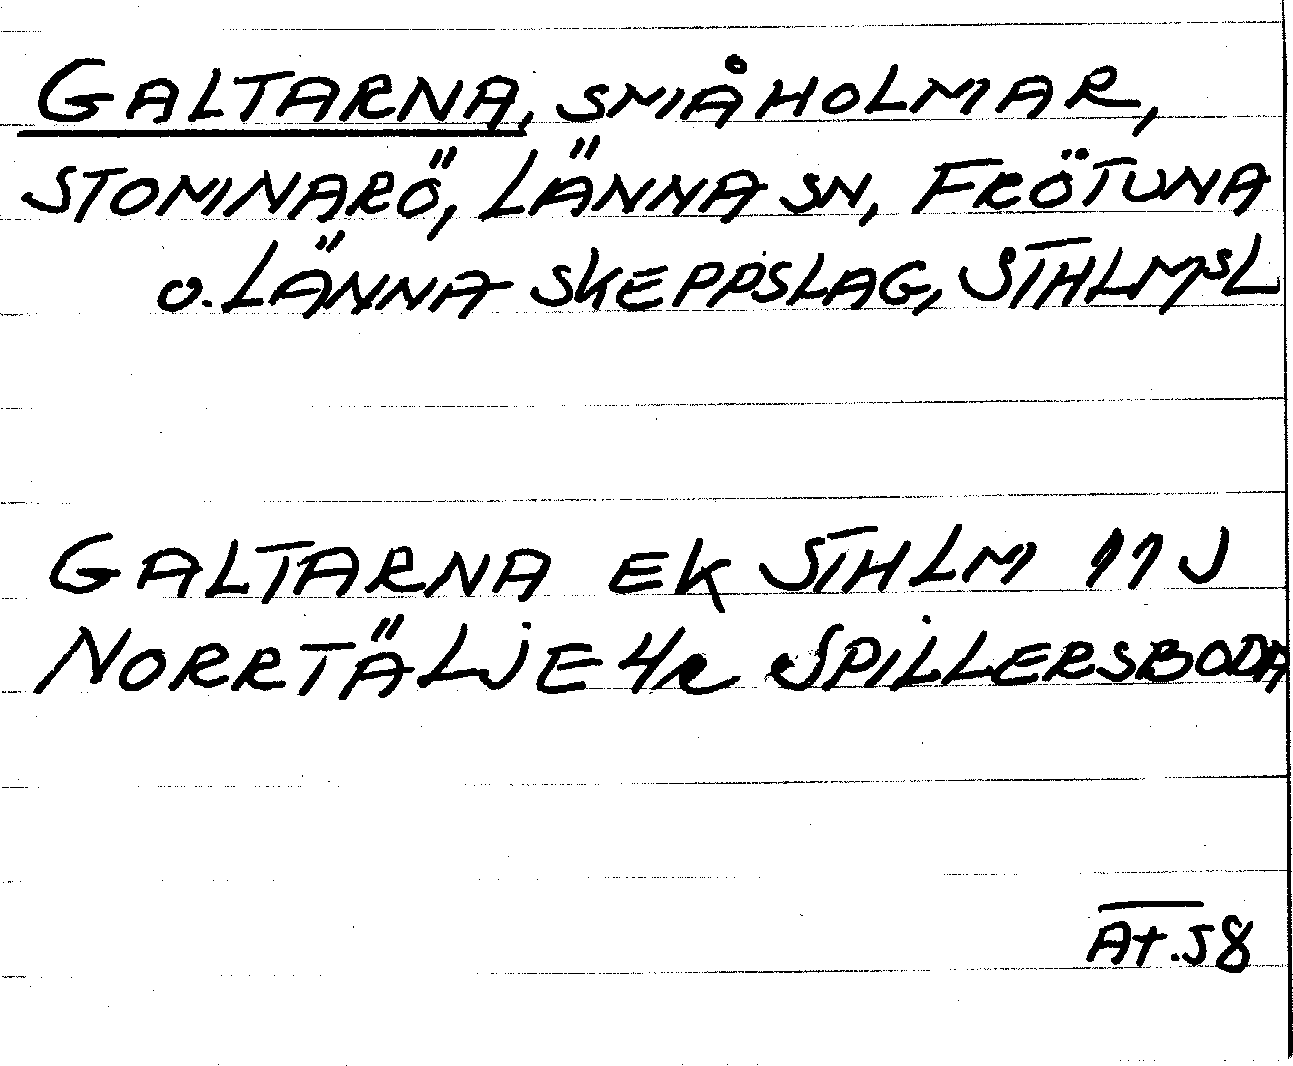 GALTARNA, SMÅHOLMAR,
STOMNARÖ, LÄNNA SN, FRÖTUNA
O. LÄNNA SKEPPSLAG, STHLMSL
GALTARNA EK STHLM 11J
NORRTÄLJE 4/e SPILLERSBODA
At.58